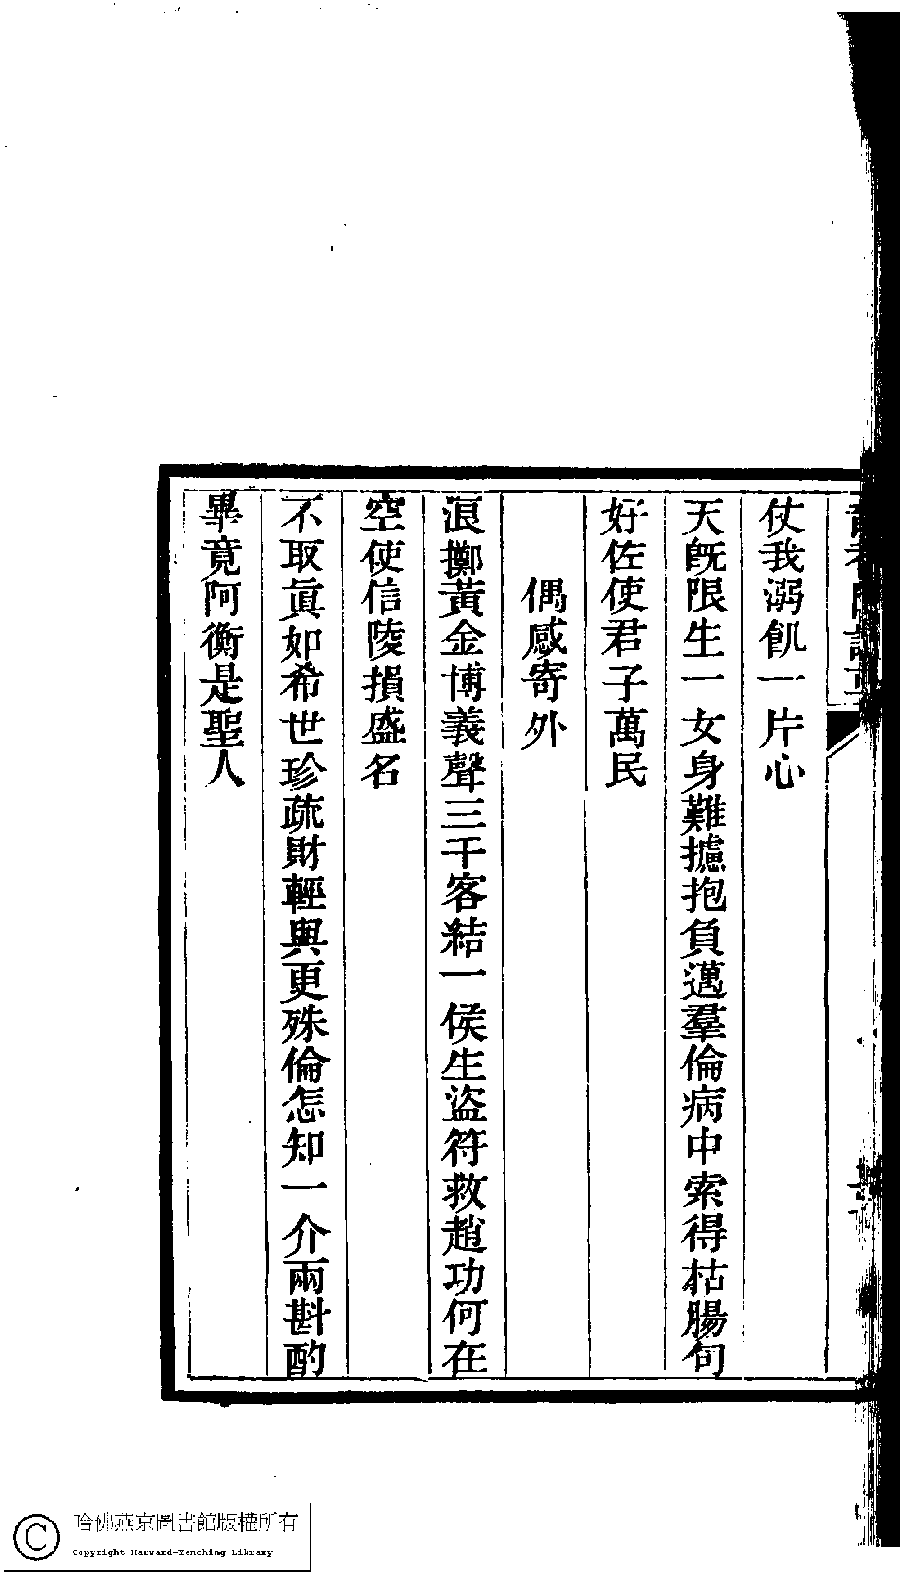 仗我溺飢一片心
天旣限生一女身難攄抱負邁羣倫病中索得枯腸句
好佐使君子萬民
偶感寄外
浪擲黃金博義聲三千客結一侯生盜符救趙功何在
空使信陵損盛名
不取眞如希世珍疏財輕與更殊倫怎知一介兩斟酌
畢竟阿衡是聖人
哈佛燕京圖書館版權所有
Copyright Harvard-Yenching Library